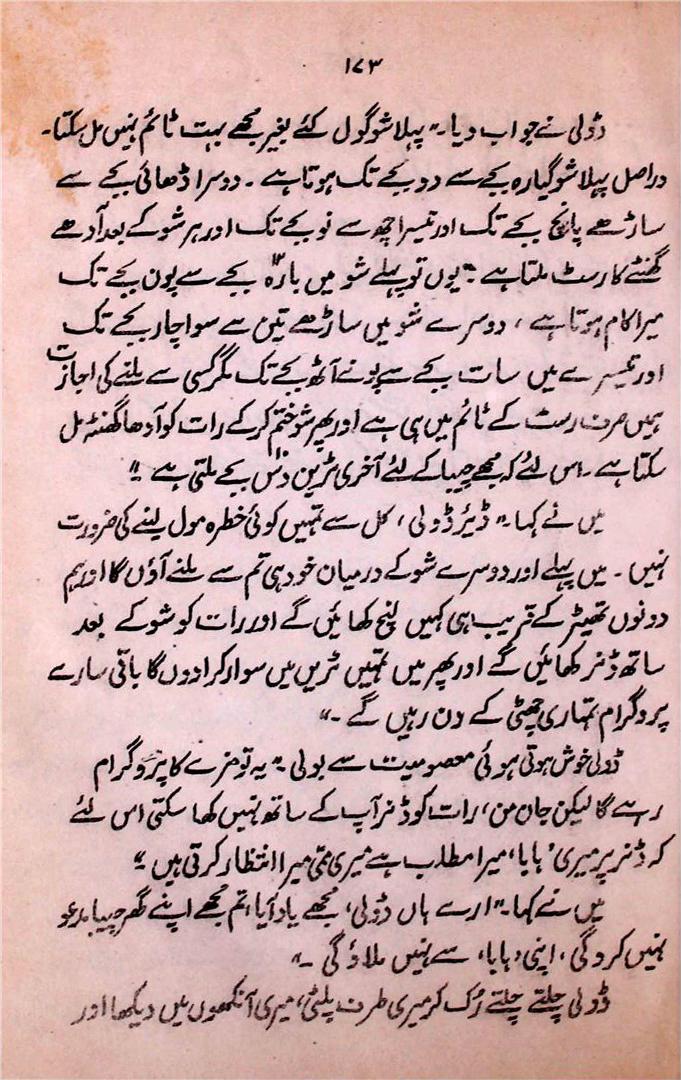 ۱۷۳
ڈولی نے جواب دیا۔ "پہلا شو گول کئے بغیر مجھے بہت ٹائم نہیں مل سکتا۔
دراصل پہلا شو گیارہ بجے سے دو بجے تک ہوتا ہے۔ دوسرا ڈھائی بجے سے
ساڑھے پانچ بجے تک اور تیسرا چھ سے نو بجے تک اور ہر شو کے بعد آدھے
گھنٹے کا رسٹ ملتا ہے۔ یوں تو پہلے شو میں بارہ بجے سے پون بجے تک
میرا کام ہوتا ہے، دوسرے شو میں ساڑھے تین سے سوا چار بجے تک
اور تیسرے میں سات بجے سے پونے آٹھ بجے تک مگر کسی سے ملنے کی اجازت
ہمیں صرف رسٹ کے ٹائم میں ہی ہے اور پھر شو ختم کرکے رات کو آدھا گھنٹہ مل
سکتا ہے۔ اس لئے کہ مجھے چیبا کے لئے آخری ٹرین دس بجے ملتی ہے۔"
میں نے کہا۔ "ڈیئر ڈولی، کل سے تمہیں کوئی خطرہ مول لینے کی ضرورت
نہیں۔ میں پہلے اور دوسرے شو کے درمیان خود ہی تم سے ملنے آؤں گا اور ہم
دونوں تھیٹر کے قریب ہی کہیں لنچ کھائیں گے اور رات کو شو کے بعد
ساتھ ڈنر کھائیں گے اور پھر میں تمہیں ٹرین میں سوار کرا دوں گا باقی سارے
پروگرام تمہاری چھٹی کے دن رہیں گے۔"
ڈولی خوش ہوتی ہوئی معصومیت سے بولی۔ "یہ تو مزے کا پروگرام
رہے گا لیکن جان من، رات کو ڈنر آپ کے ساتھ نہیں کھا سکتی اس لئے
کہ ڈنر پر میری 'ہاہا' میرا مطلب ہے میری ممی میرا انتظار کرتی ہیں۔"
میں نے کہا۔ "ارے ہاں ڈولی، مجھے یاد آیا، تم مجھے اپنے گھر چیبا مدعو
نہیں کرو گی، اپنی 'ہاہا' سے نہیں ملاؤ گی۔"
ڈولی چلتے چلتے رُک کر میری طرف پلٹی، میری آنکھوں میں دیکھا اور